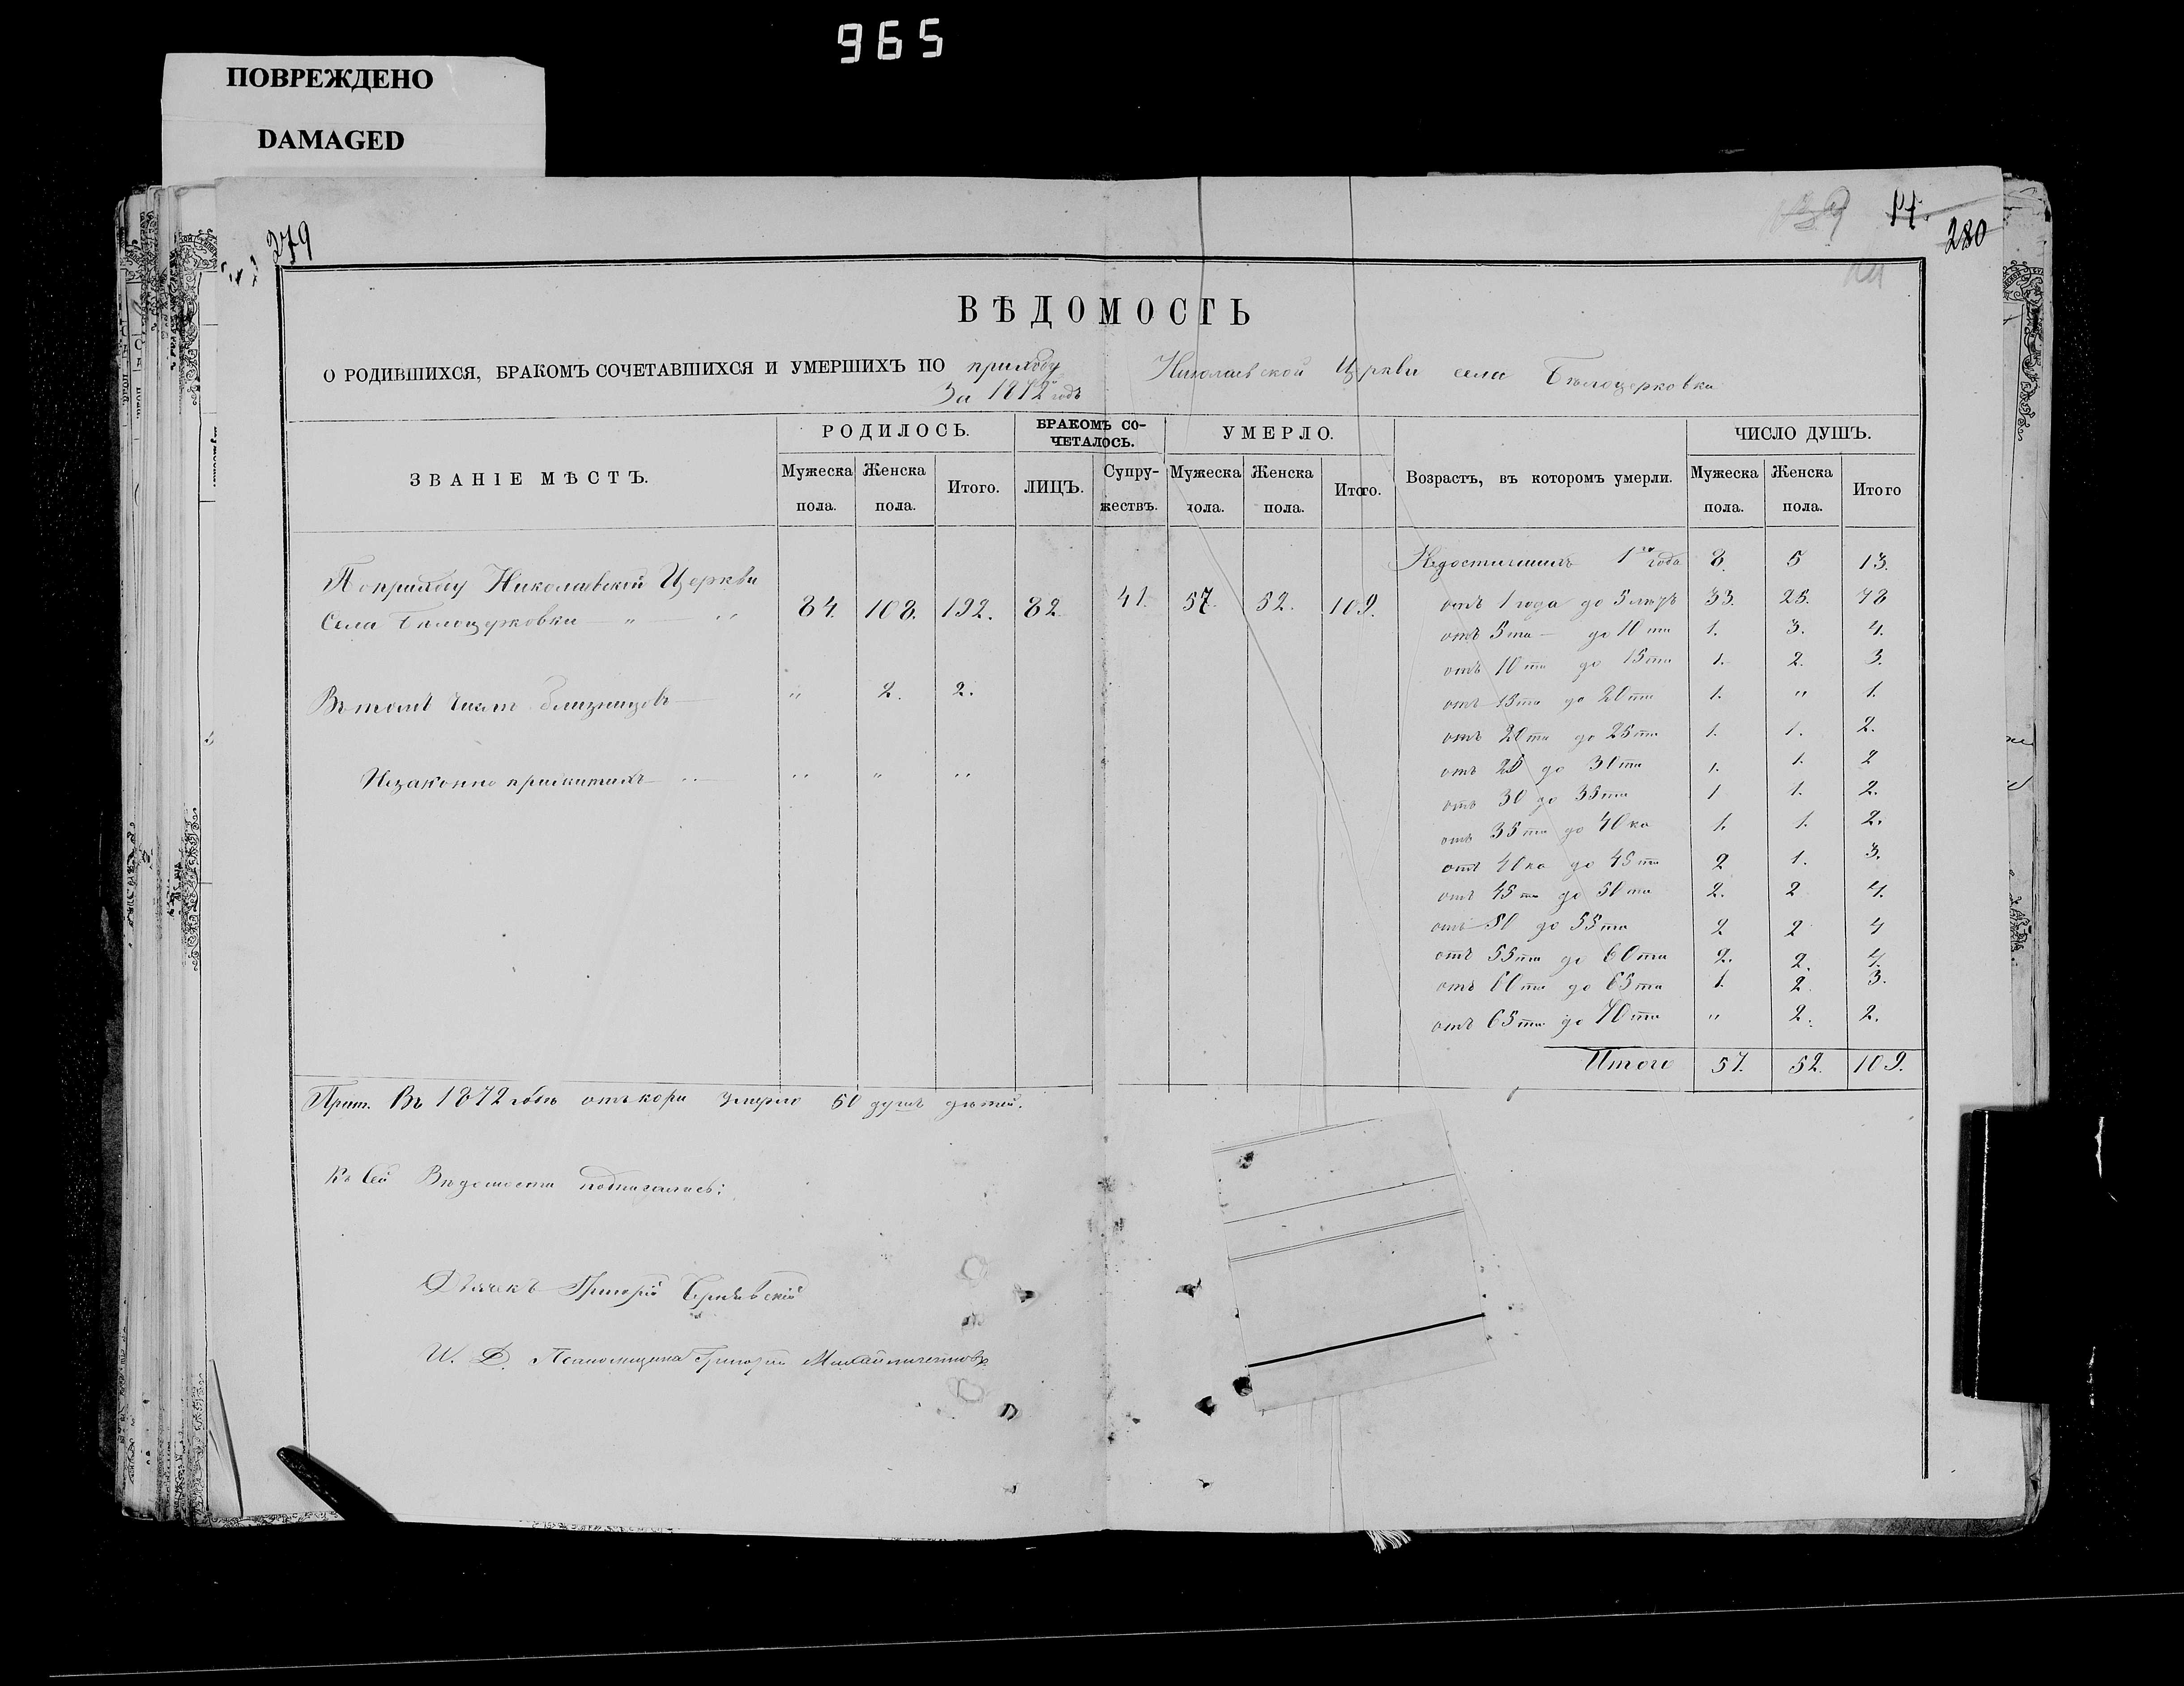 965
ПОВРЕЖДЕНО
DAMAGED
279
14.
280
ВѢДОМОСТЬ
О РОДИВШИХСЯ, БРАКОМЪ СОЧЕТАВШИХСЯ И УМЕРШИХЪ ПО приходу Николаевской Церкви села Бѣлоцерковки
За 1872й годъ
ЗВАНІЕ МѢСТЪ. РОДИЛОСЬ. БРАКОМЪ СОЧЕТАЛОСЬ. УМЕРЛО. Возрастъ, въ которомъ умерли. ЧИСЛО ДУШЪ.
Мужеска пола. Женска пола. Итого. ЛИЦЪ. Супружествъ. Мужеска пола. Женска пола. Итого. Мужеска пола. Женска пола. Итого
По приходу Николаевской Церкви
Села Бѣлоцерковки — " — " 84. 108. 192. 82. 41. 57. 52. 109.
Въ томъ числѣ близнецовъ — " 2. 2.
Незаконно прижитыхъ — " — " " "
Недостигшихъ 1го года 8. 5 13.
отъ 1 года до 5 лѣтъ 33. 25. 48
отъ 5ти — до 10ти 1. 3. 4.
отъ 10ти до 15ти 1. 2. 3.
отъ 15ти до 20ти 1. " 1.
отъ 20ти до 25ти 1. 1. 2.
отъ 25 до 30ти 1. 1. 2
отъ 30 до 35ти 1 1. 2.
отъ 35ти до 40ка 1. 1. 2.
отъ 40ка до 45ти 2 1. 3.
отъ 45ти до 50ти 2. 2 4.
отъ 50 до 55ти 2 2 4
отъ 55ти до 60ти 2. 2. 4.
отъ 60ти до 65ти 1. 2. 3.
отъ 65ти до 70ти " 2. 2.
Итого 57. 52. 109.
Прим. Въ 1872 годѣ отъ кори умерло 60 душъ дѣтей.
Къ сей Вѣдомости подписались:
Дьячекъ Григорій
И. Д. Псаломщика Григорій